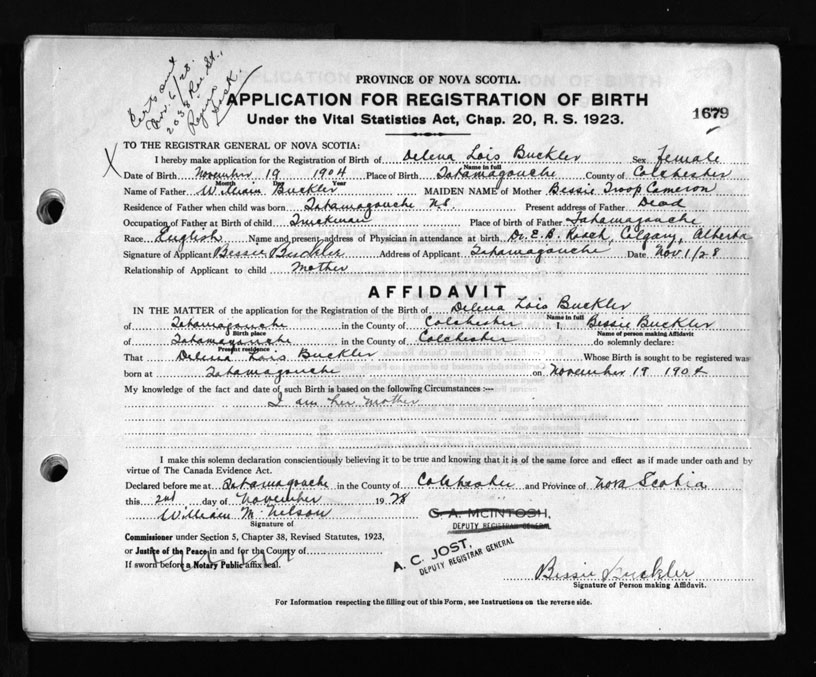 Cert sent
Nov. 6/28.
2038 Rae St.,
Regina
Sask.
PROVINCE OF NOVA SCOTIA.
APPLICATION FOR REGISTRATION OF BIRTH
Under the Vital Statistics Act, Chap. 20, R. S. 1923.
1679
TO THE REGISTRAR GENERAL OF NOVA SCOTIA:
I hereby make application for the Registration of Birth of Delena Lois Buckler Sex Female
Name in full
Date of Birth November 19 1904 Place of Birth Tatamagouche County of Colchester
Month Day Year
Name of Father William Buckler MAIDEN NAME of Mother Bessie Troop Cameron
Residence of Father when child was born Tatamagouche N.S. Present address of Father Dead
Occupation of Father at Birth of child Truckman Place of birth of Father Tatamagouche
Race English Name and present address of Physician in attendance at birth Dr. E. B. Roach, Calgary, Alberta
Signature of Applicant Bessie Buckler Address of Applicant Tatamagouche Date Nov 1/28
Relationship of Applicant to child Mother
AFFIDAVIT
IN THE MATTER of the application for the Registration of the Birth of Delena Lois Buckler
Name in full
of Tatamagouche in the County of Colchester I, Bessie Buckler
Birth place Name of person making Affidavit
of Tatamagouche in the County of Colchester do solemnly declare:
Present residence
That Delena Lois Buckler Whose Birth is sought to be registered was
born at Tatamagouche on November 19 1904
My knowledge of the fact and date of such Birth is based on the following Circumstances:—
I am her mother
I make this solemn declaration conscientiously believing it to be true and knowing that it is of the same force and effect as if made under oath and by
virtue of The Canada Evidence Act.
Declared before me at Tatamagouche in the County of Colchester and Province of Nova Scotia
this 2nd day of November 1928
William M. Nelson
Signature of
G. A. MCINTOSH,
DEPUTY REGISTRAR GENERAL
Commissioner under Section 5, Chapter 38, Revised Statutes, 1923,
or Justice of the Peace in and for the County of
If sworn before a Notary Public affix seal.
A. C. JOST,
DEPUTY REGISTRAR GENERAL
Bessie Buckler
Signature of Person making Affidavit.
For Information respecting the filling out of this Form, see Instructions on the reverse side.